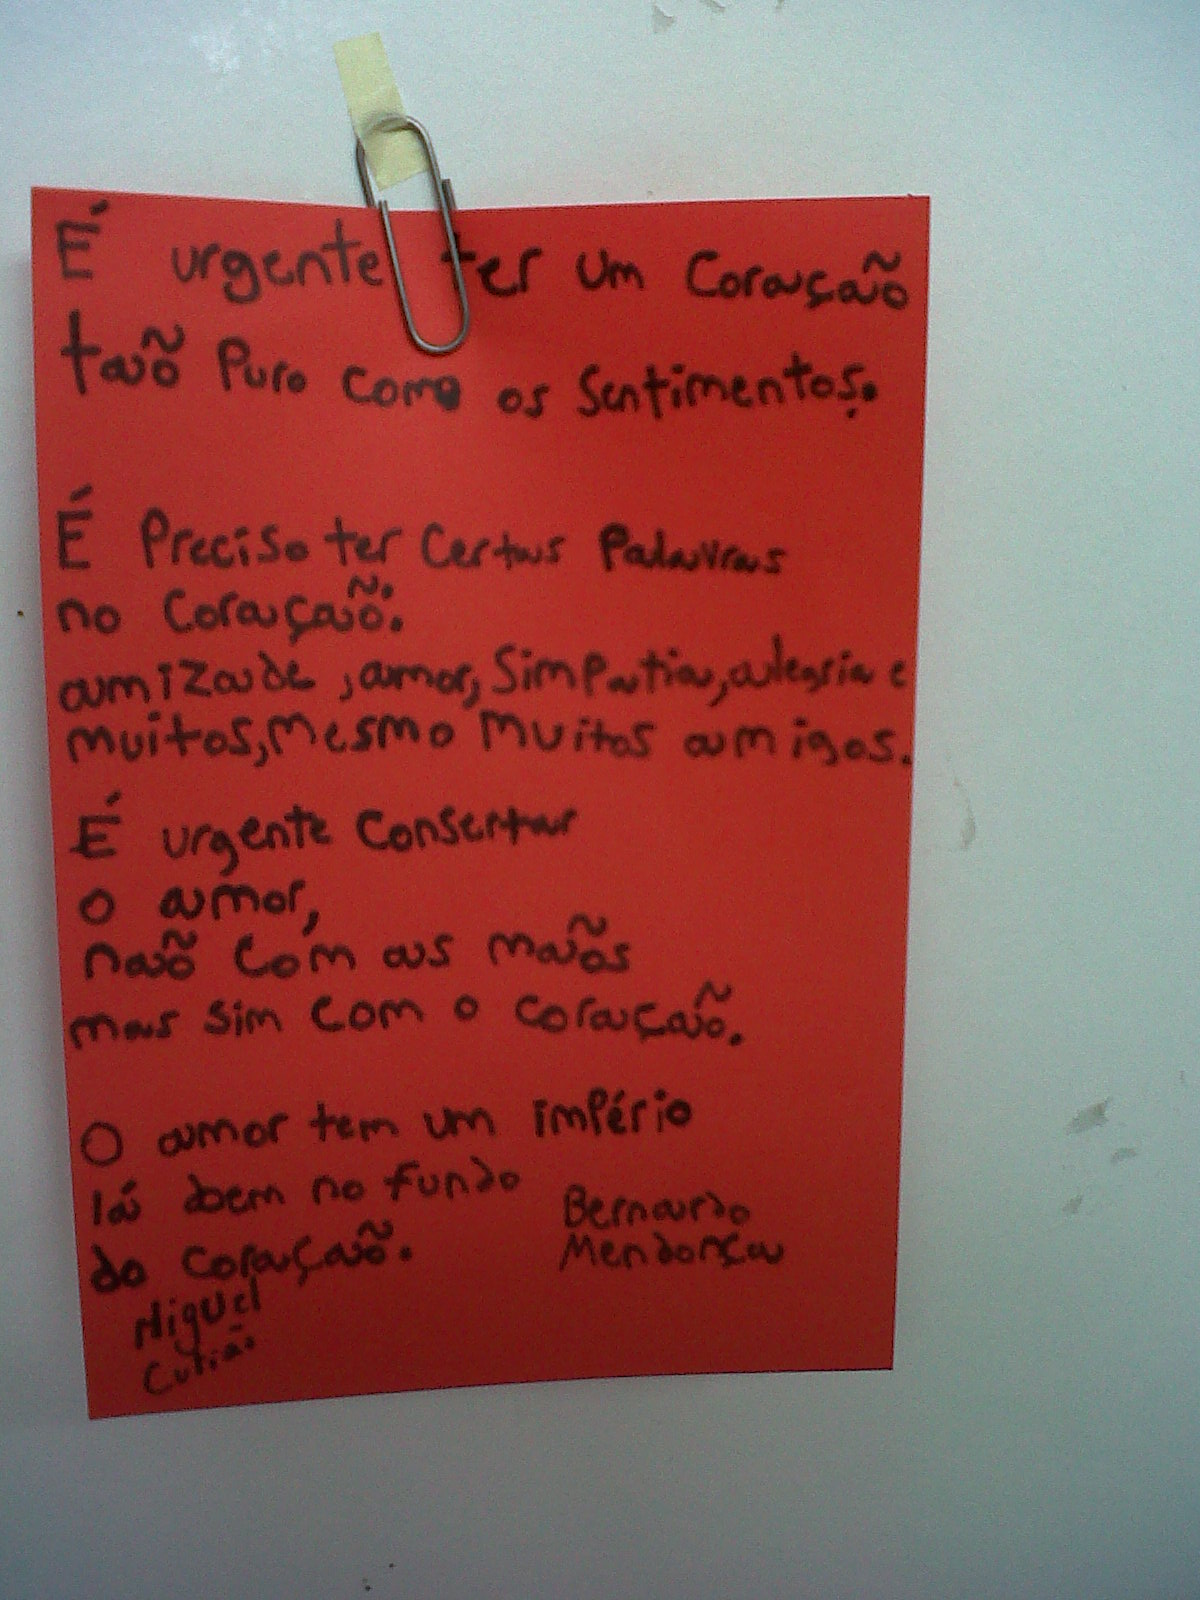 É urgente ter um coração
tão puro como os sentimentos.
É preciso ter certas palavras
no coração.
amizade, amor, simpatia, alegria e
muitos, mesmo muitos amigos.
É urgente consertar
o amor,
não com as mãos
mas sim com o coração.
O amor tem um império
lá bem no fundo
do coração.
Bernardo
Mendonça
Miguel